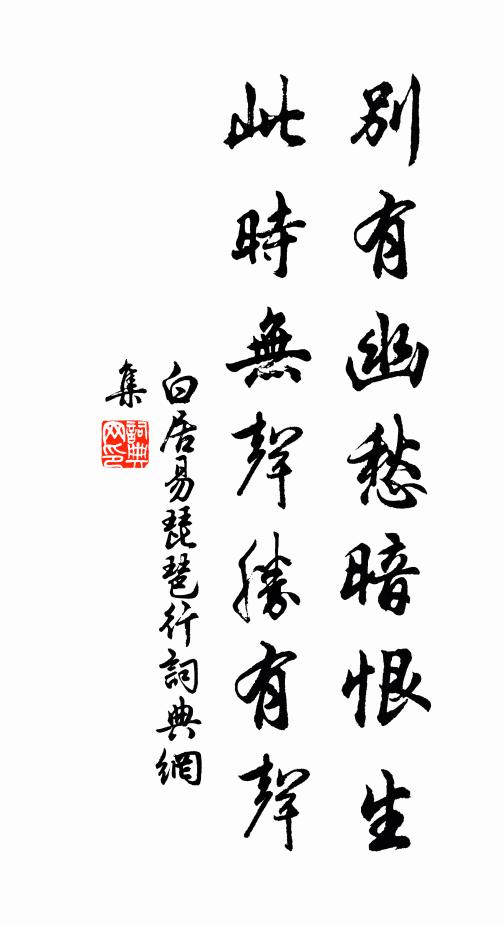 別有幽愁暗恨生
此時無聲勝有聲
白居易琵琶行詞典網
集
詞典
网印